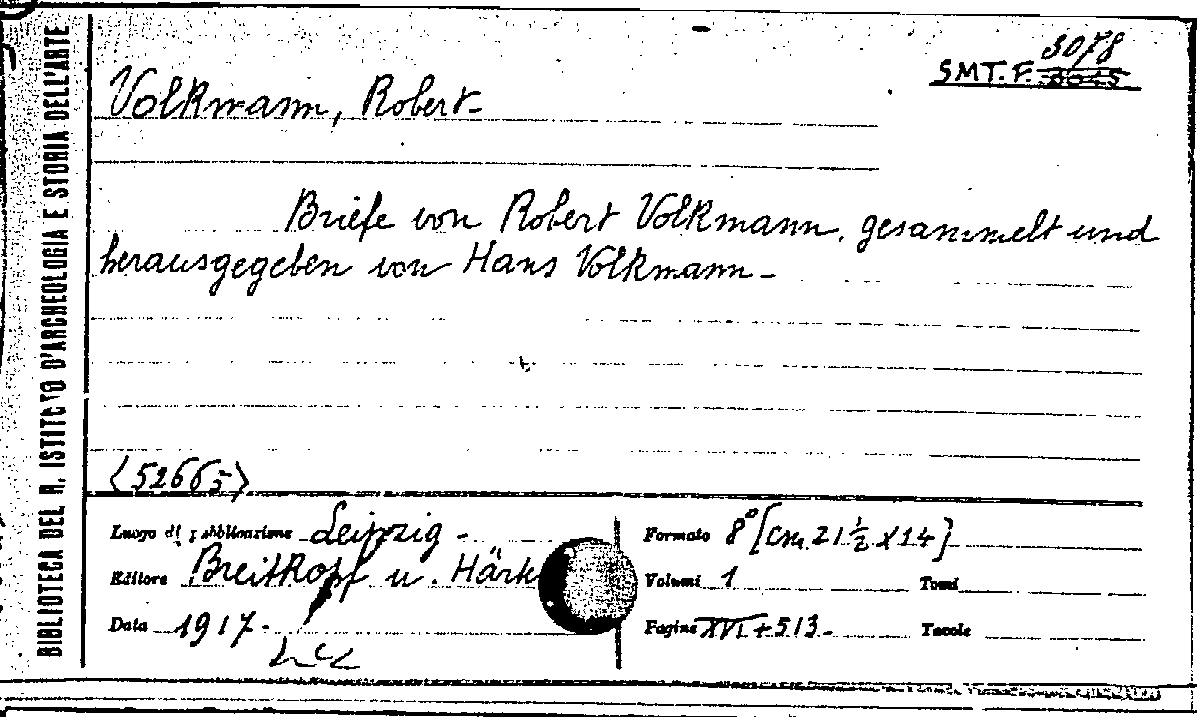 BIBLIOTECA DEL R. ISTITUTO D'ARCHEOLOGIA E STORIA DELL'ARTE
3078
SMT. F.
Volkmann, Robert-
Briefe von Robert Volkmann, gesammelt und
herausgegeben von Hans Volkmann-
<52665>
Luogo di pubblicazione Leipzig -
Editore Breitkopf u. Härk
Data 1917-
Formato 8° [cm. 21 ½ x 14]
Volumi 1 Tomi
Pagine XVI + 513- Tavole